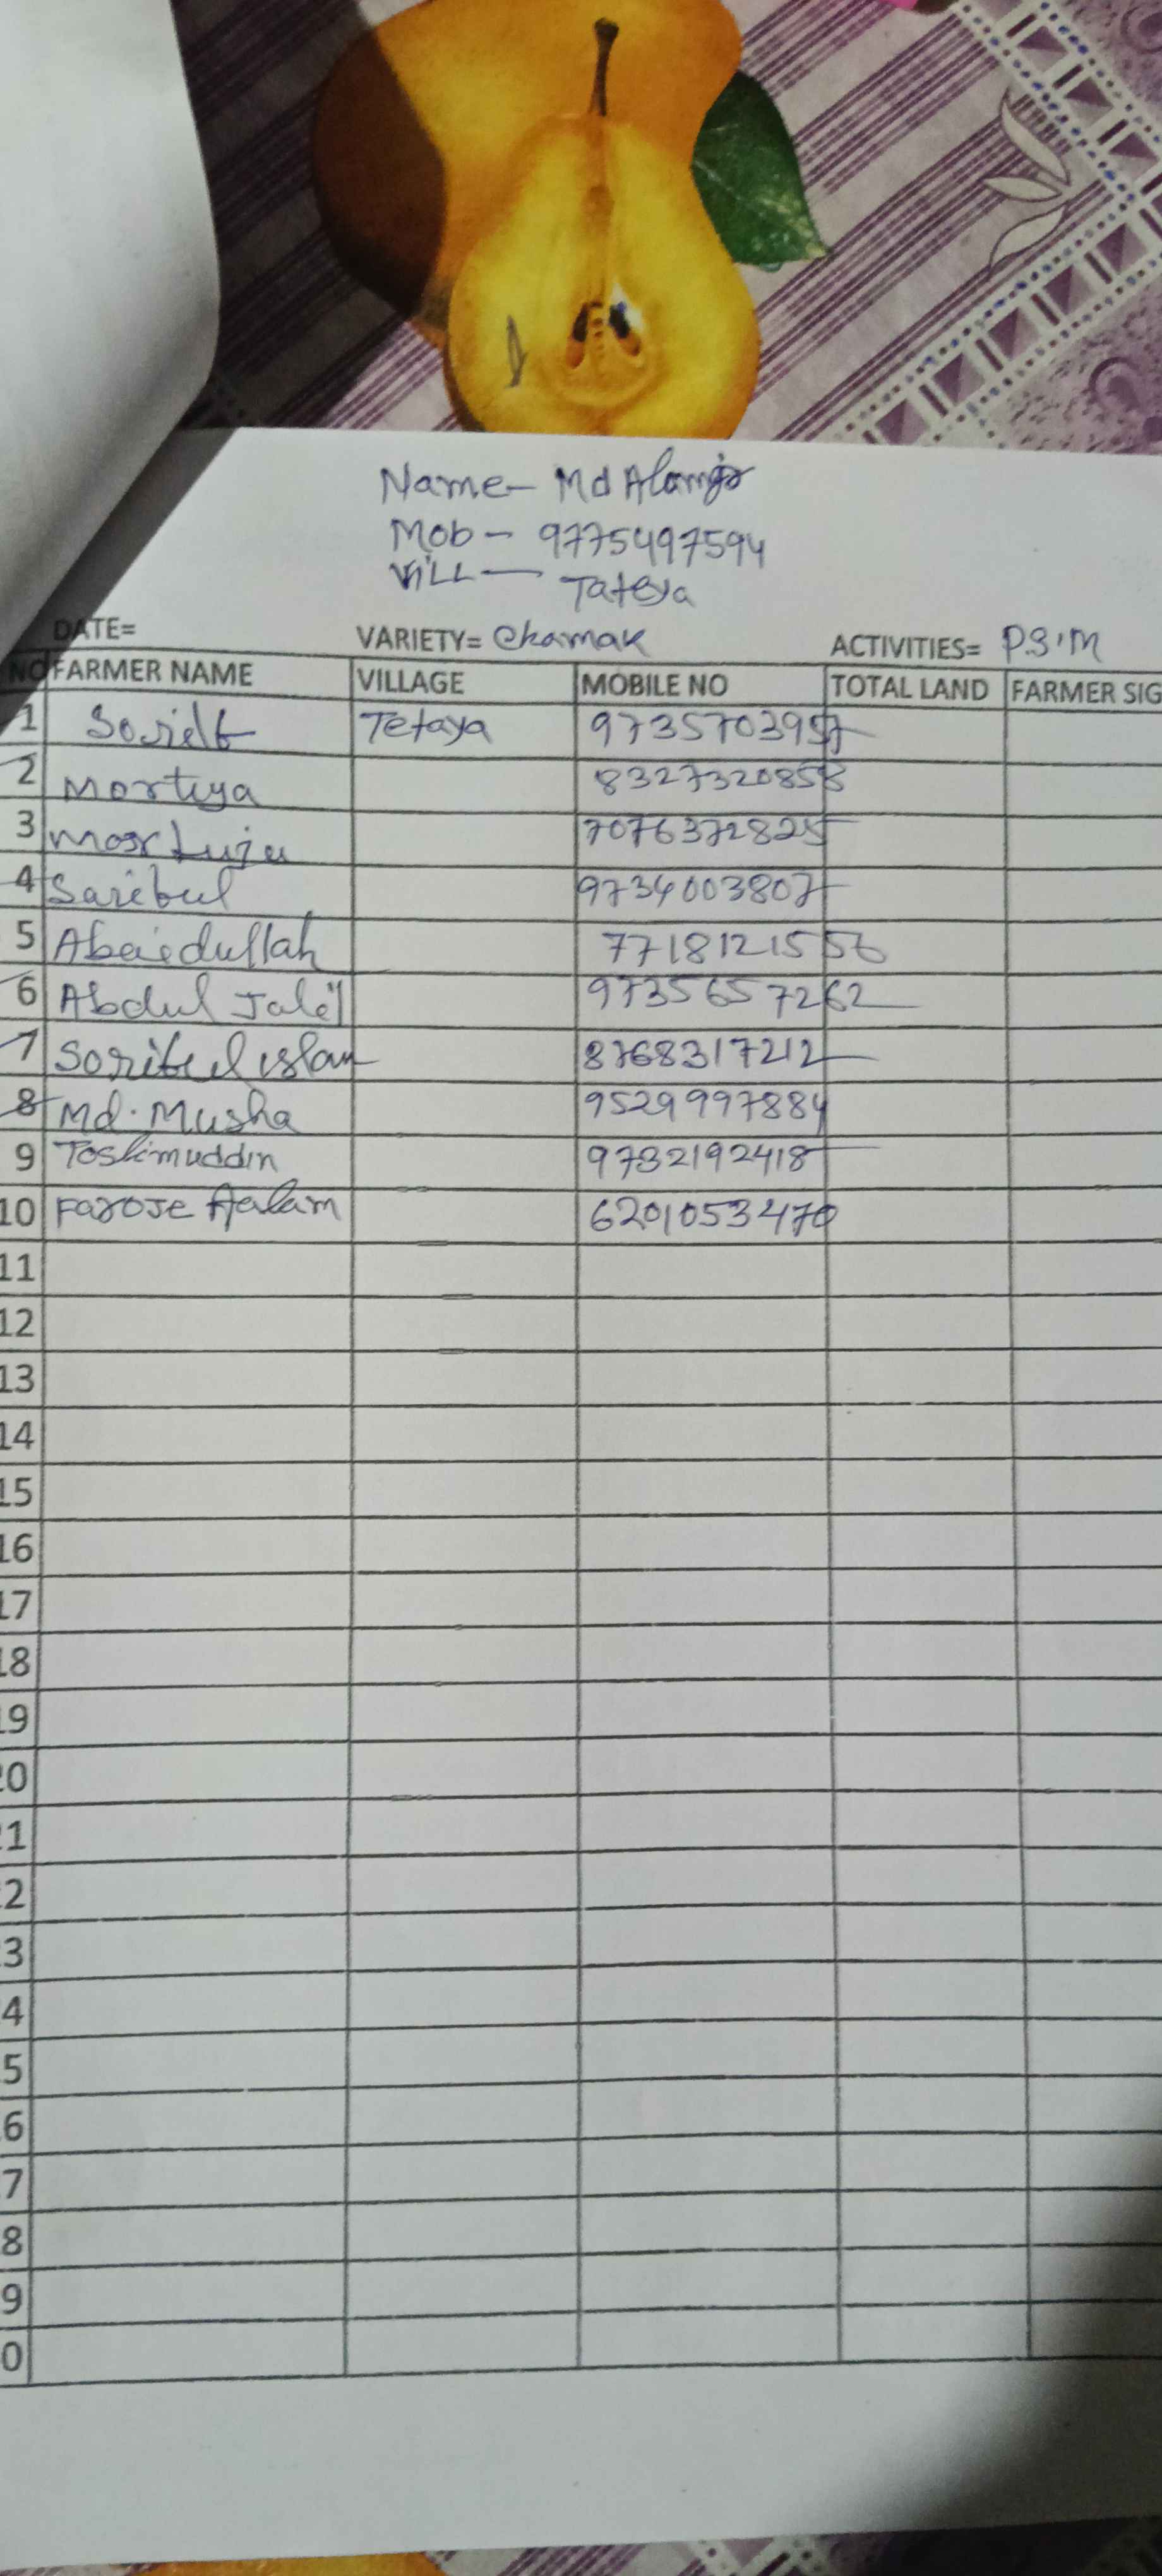 Name- Md Alamgir
Mob- 9775497594
Vill- Tateya
DATE= VARIETY= Chamak ACTIVITIES= P.S.M
NO FARMER NAME VILLAGE MOBILE NO TOTAL LAND FARMER SIG
1 Tetaya 9735703957
2 Mortuja 8327320858
3 Mortuju 7076372825
4 Saribul 9734003807
5 Abaidullah 7718121556
6 Abdul Jalil 9735657262
7 Soribul islam 8768317212
8 Md. Musha 9529997884
9 Toslimuddin 9732192418
10 Faroje Aalam 6201053470
11
12
13
14
15
16
17
18
19
20
21
22
23
24
25
26
27
28
29
30